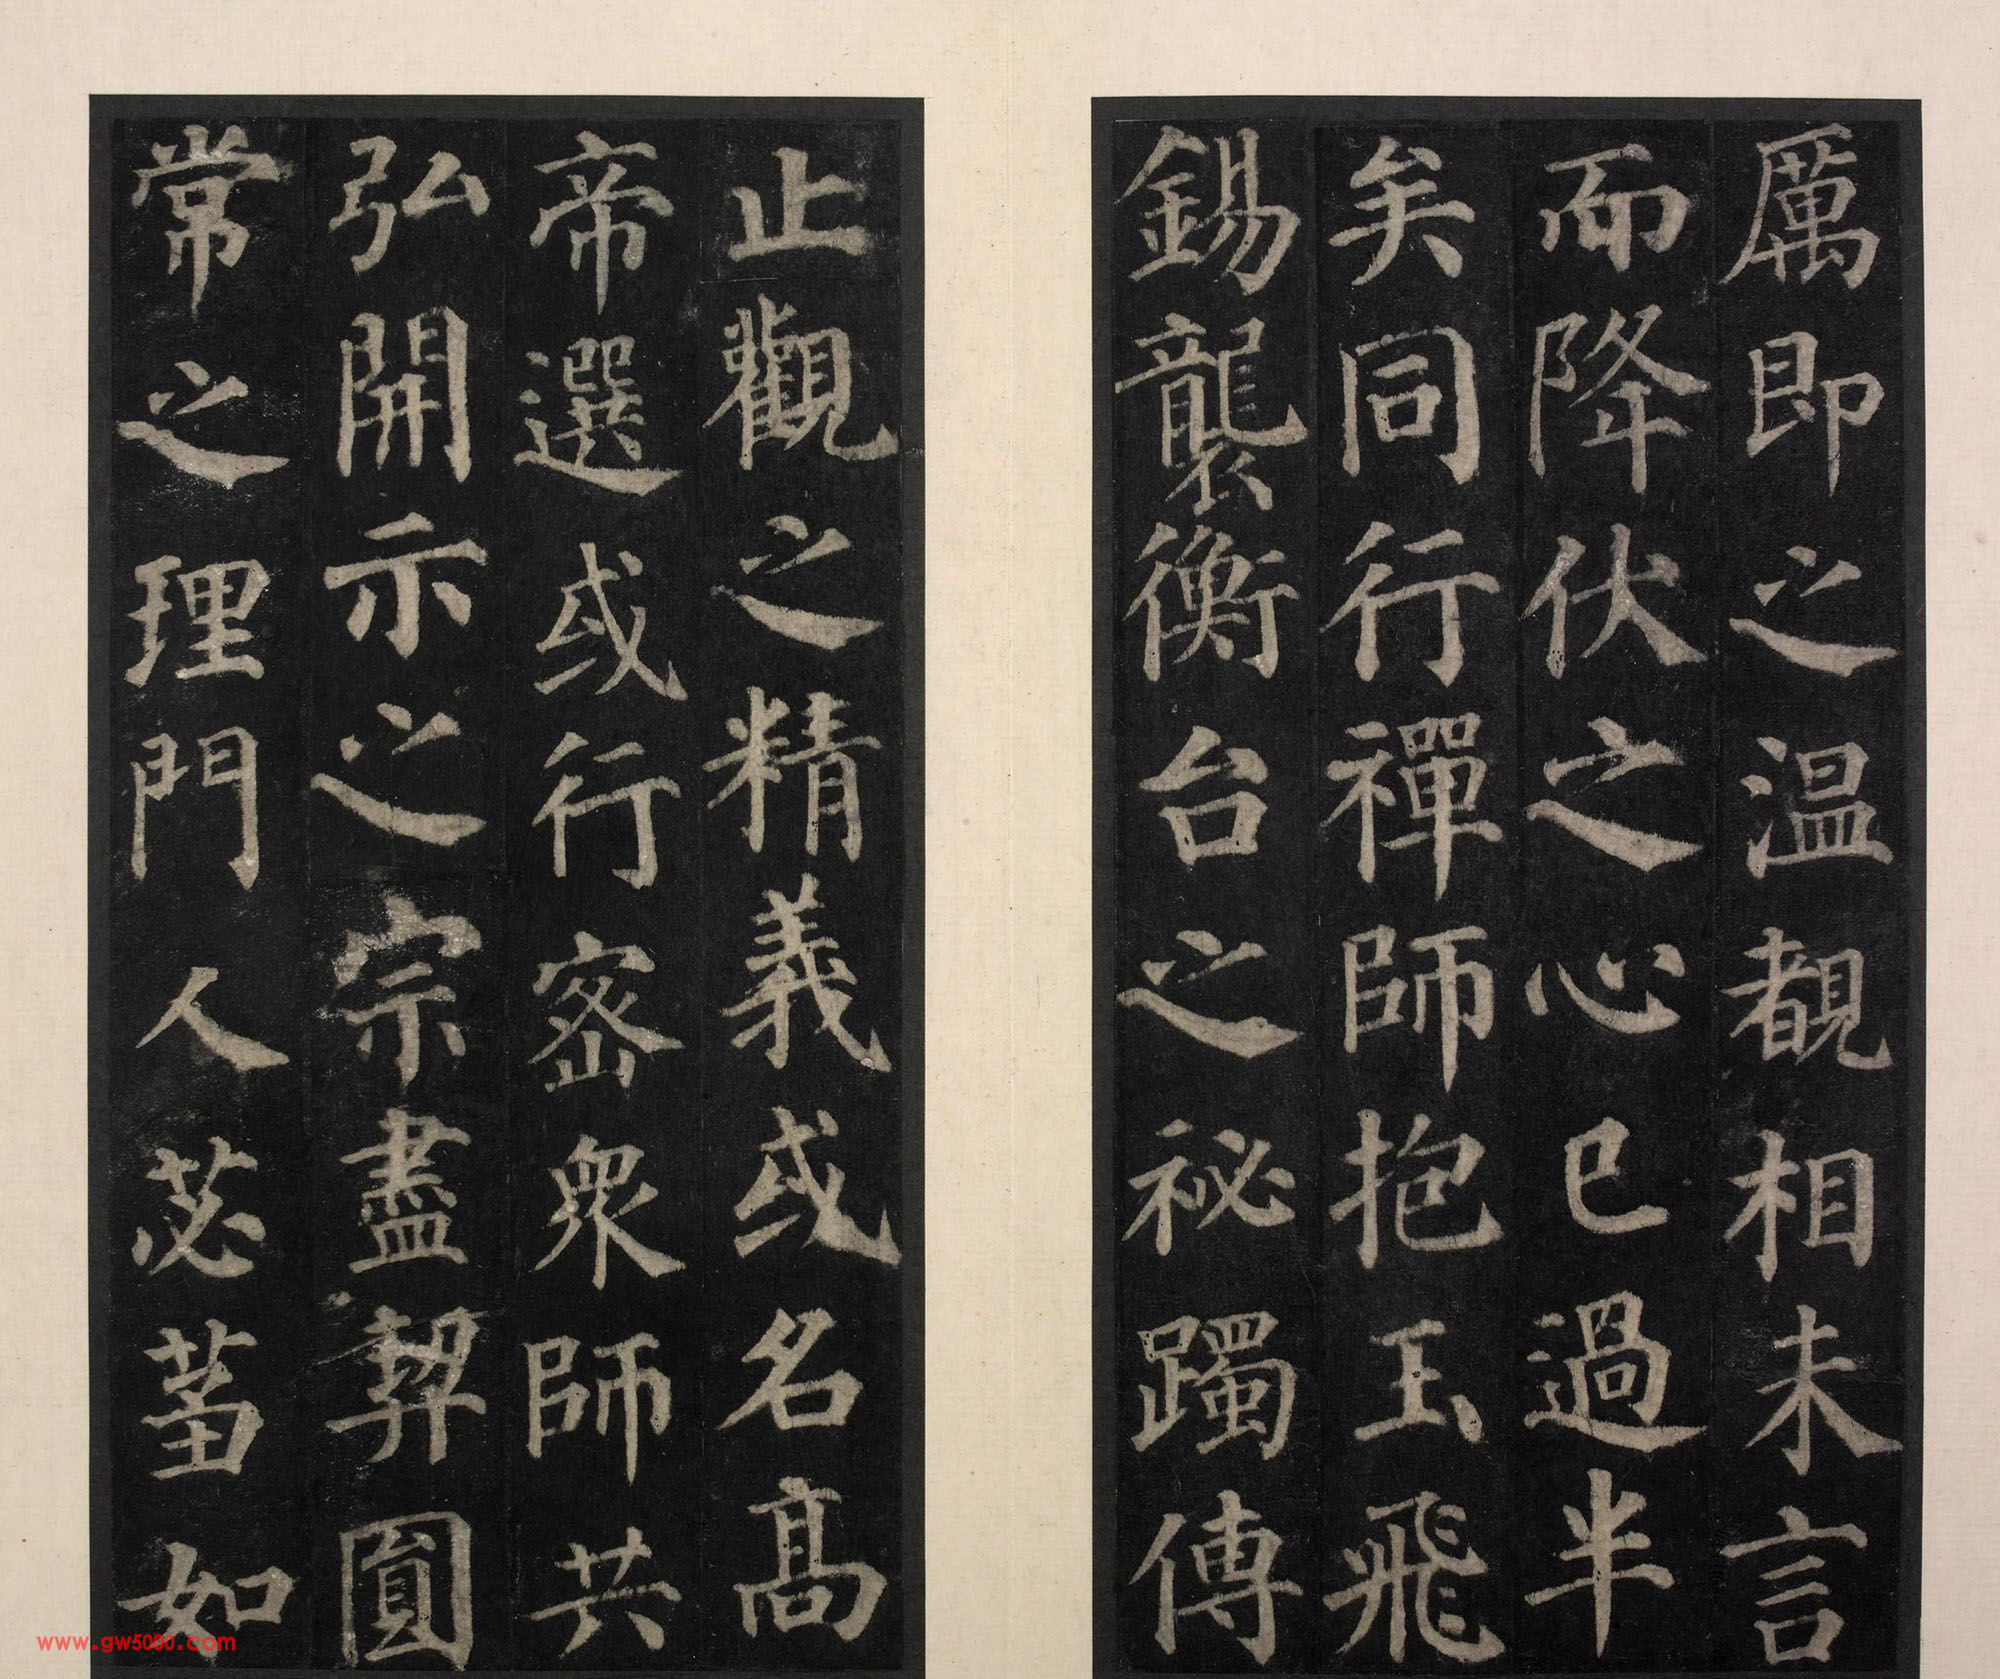 厲即之溫覩相未言
而降伏之心已過半
矣同行禪師抱玉飛
錫襲衡台之祕躅傳
止觀之精義或名高
帝選或行密眾師共
弘開示之宗盡契圓
常之理門人苾蒭如
www.gw5000.com